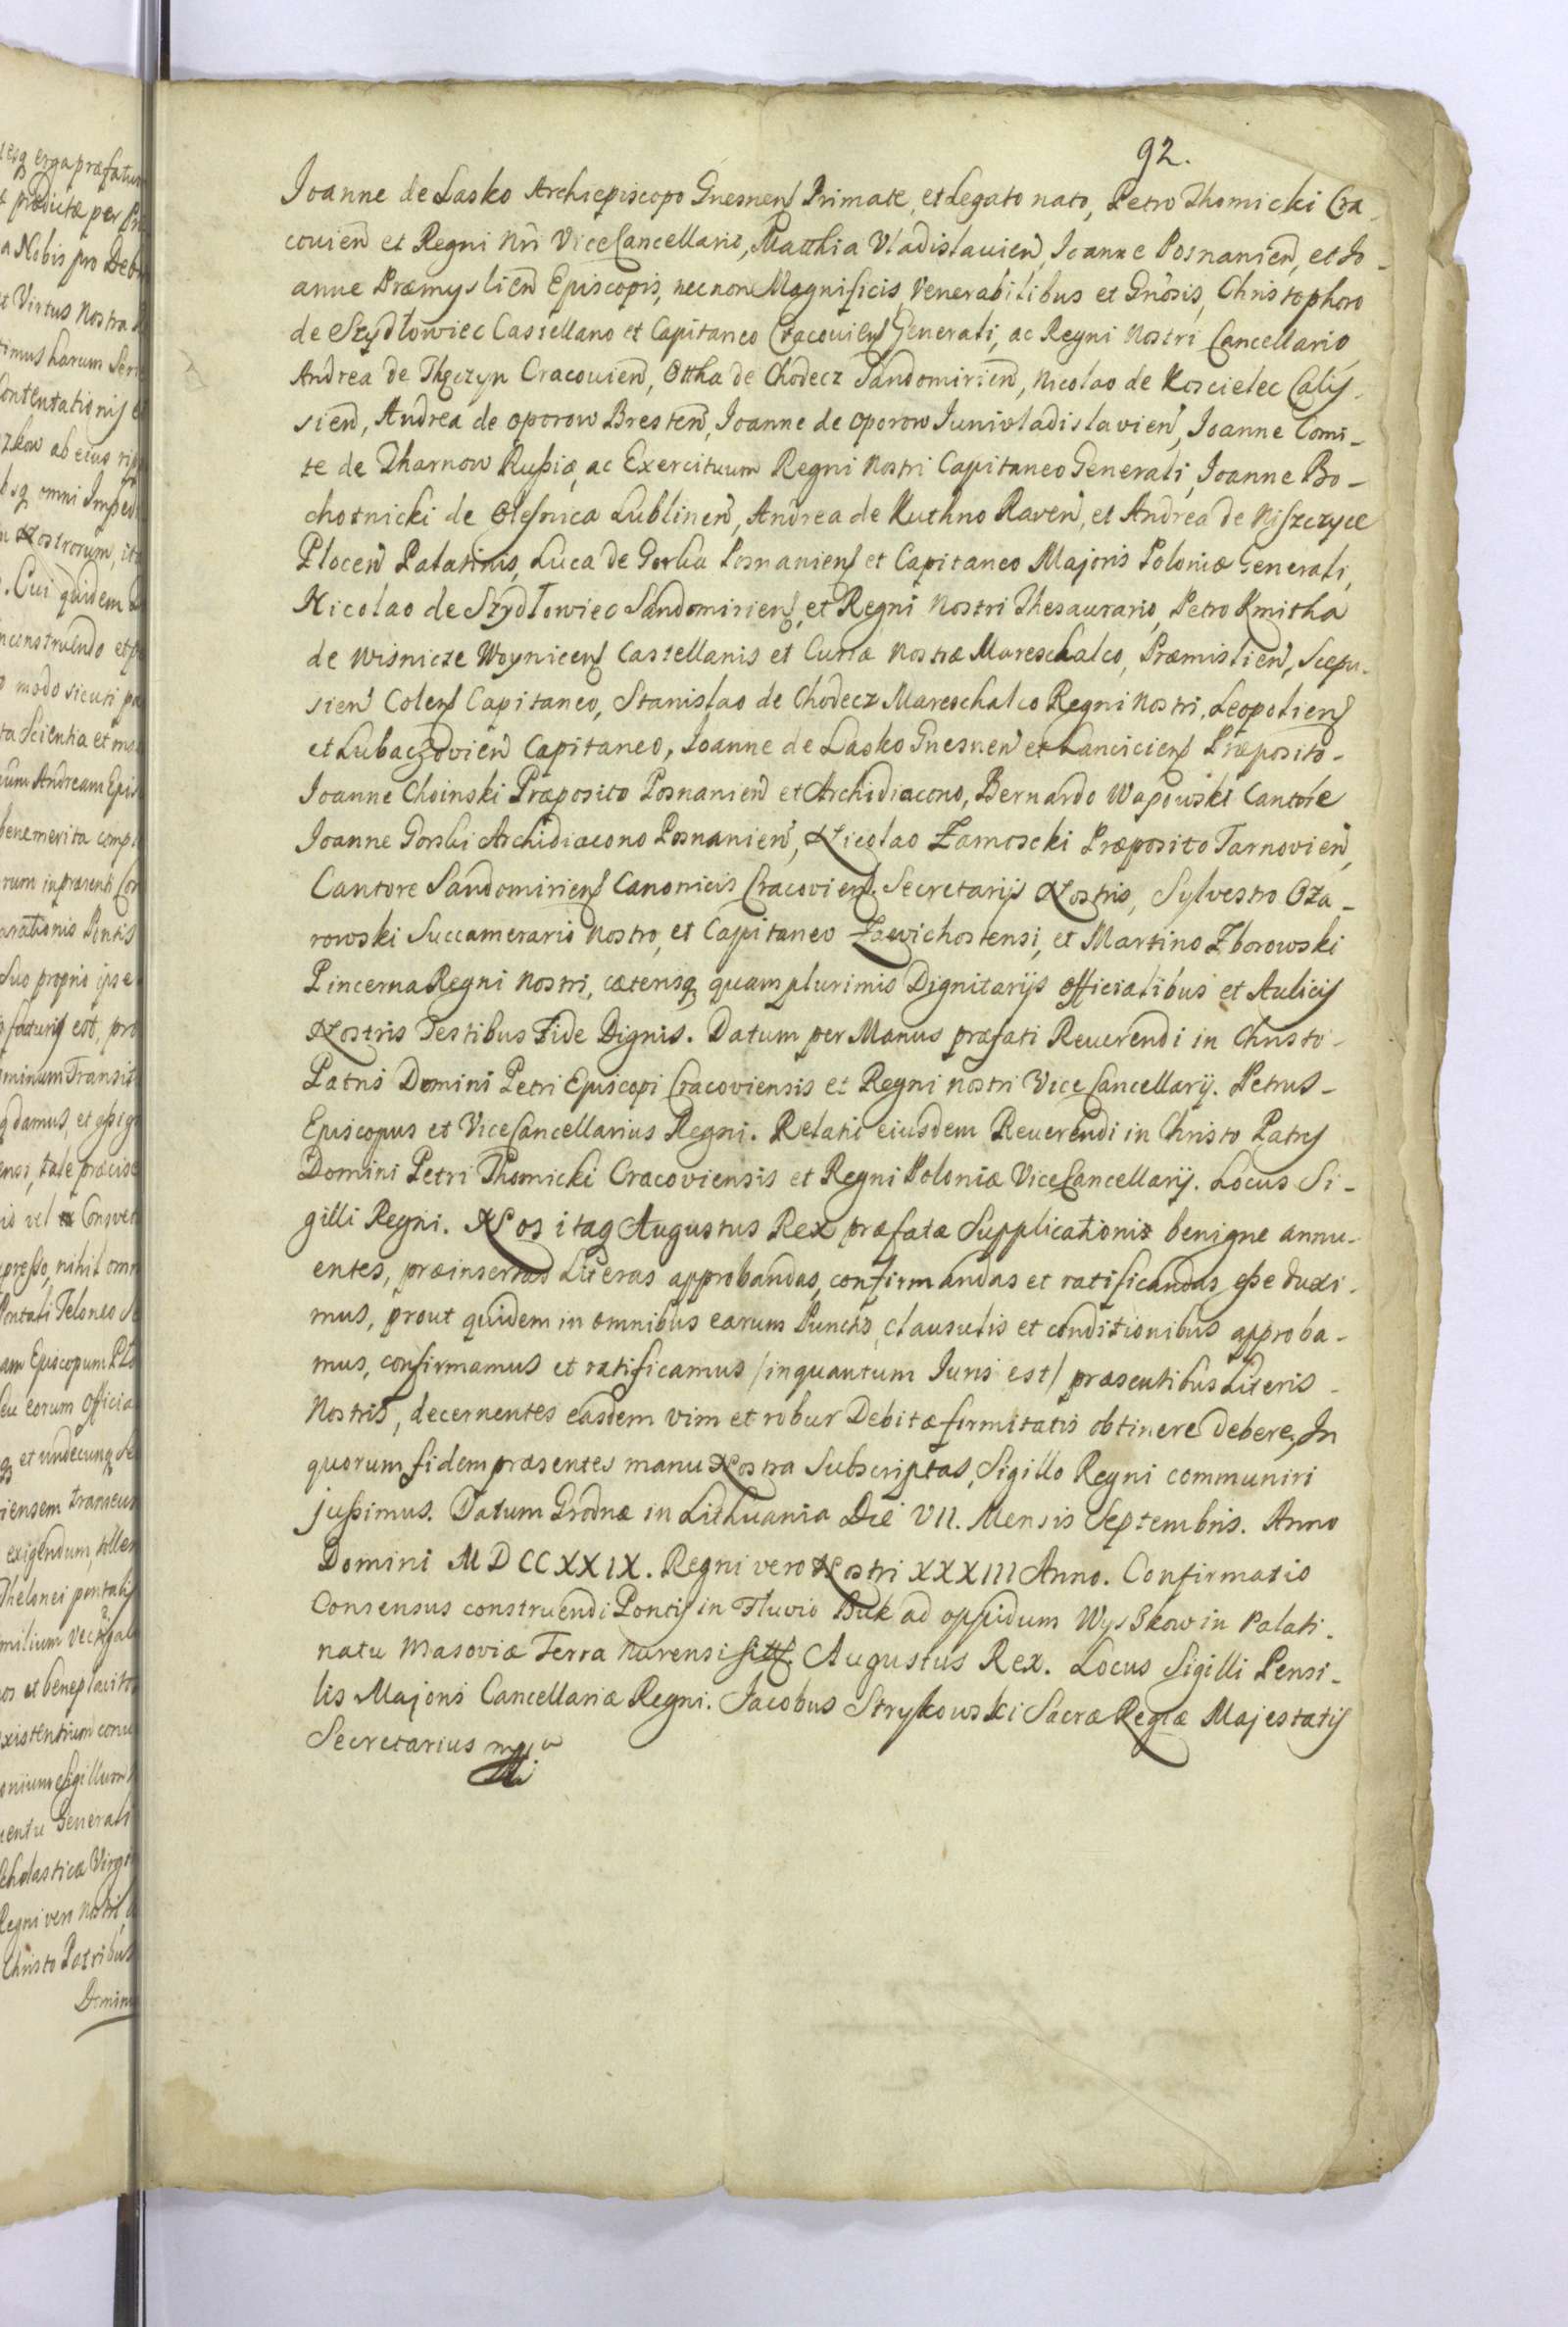 92.
Joanne de Lasko Archiepiscopo Gnesnens Primate, et Legato nato, Petro Thomicki Cra-
couien et Regni Nri ViceCancellario, Matthia Vladislauien, Joanne Posnanien, et Jo-
anne Præmyslien Episcopis, necnon Magnificis Venerabilibus et Gnosis, Christophoro
de Szydłowiec Castellano et Capitaneo Cracouiens Generali, ac Regni Nostri Cancellario
Andrea de Thęczyn Cracouien, Ottha de Chodecz Sandomirien, Nicolao de Koscielec Calis-
sien, Andrea de Oporow Bresten, Joanne de Oporow Junivladislavien, Joanne Comi-
te de Tharnow Russiæ, ac Exercituum Regni Nostri Capitaneo Generali, Joanne Bo-
chotnicki de Olesnica Lublinen, Andrea de Kuthno Raven, et Andrea de Niszczyce
Plocen Palatinis, Luca de Gorka Posnaniens et Capitaneo Majoris Poloniæ Generali,
Nicolao de Szydłowiec Sandomiriens, et Regni Nostri Thesaurario, Petro Kmitha
de Wisnicze Woynicens Castellanis et Curiæ Nostræ Mareschalco, Præmislien, Scepu-
sien Colens Capitaneo, Stanislao de Chodecz Mareschalco Regni Nostri, Leopoliens
et Lubaczovien Capitaneo, Joanne de Lasko Gnesnen et Lanciciens Præposito-
Joanne Choinski Præposito Posnanien et Archidiacono, Bernardo Wapowski Cantore
Joanne Gorski Archidiacono Posnanien, Nicolao Zamoscki Præposito Tarnovien,
Cantore Sandomiriens Canonicis Cracoviens. Secretarijs Nostris, Sylvestro Oża-
rowski Succamerario nostro, et Capitaneo Zawichostensi, et Martino Zborowski
Pincerna Regni Nostri, cæterisq quamplurimis Dignitarijs Officialibus et Aulicis
Nostris Testibus Fide Dignis. Datum per Manus præfati Reuerendi in Christo-
Patris Domini Petri Episcopi Cracoviensis et Regni nostri ViceCancellarij. Petrus-
Episcopus et ViceCancellarius Regni. Relatio eiusdem Reuerendi in Christo Patris
Domini Petri Thomicki Cracoviensis et Regni Poloniæ ViceCancellarij. Locus Si-
gilli Regni. Nos itaq Augustus Rex præfatæ Supplicationi benigne annu-
entes, præinsertas Literas approbandas, confirmandas et ratificandas esse duxi-
mus, prout quidem in omnibus earum Punctis, clausulis et conditionibus approba-
mus, confirmamus et ratificamus /inquantum Juris est/ præsentibus Literis-
Nostris, decernentes easdem vim et robur Debitæ firmitatis obtinere debere, In
quorum fidem præsentes manu Nostra Subscriptas, Sigillo Regni communiri
jussimus. Datum Grodnæ in Lithuania Die VII. Mensis Septembris. Anno
Domini MDCCXXIX. Regni vero Nostri XXXIII Anno. Confirmatio
Consensus construendi Pontis in Fluvio Buk ad oppidum Wyszkow in Palati-
natu Masoviæ Terra Nurensi sitt. Augustus Rex. Locus Sigilli Pensi-
lis Majoris Cancellariæ Regni. Jacobus Strykowski Sacræ Regiæ Majestatis
Secretarius